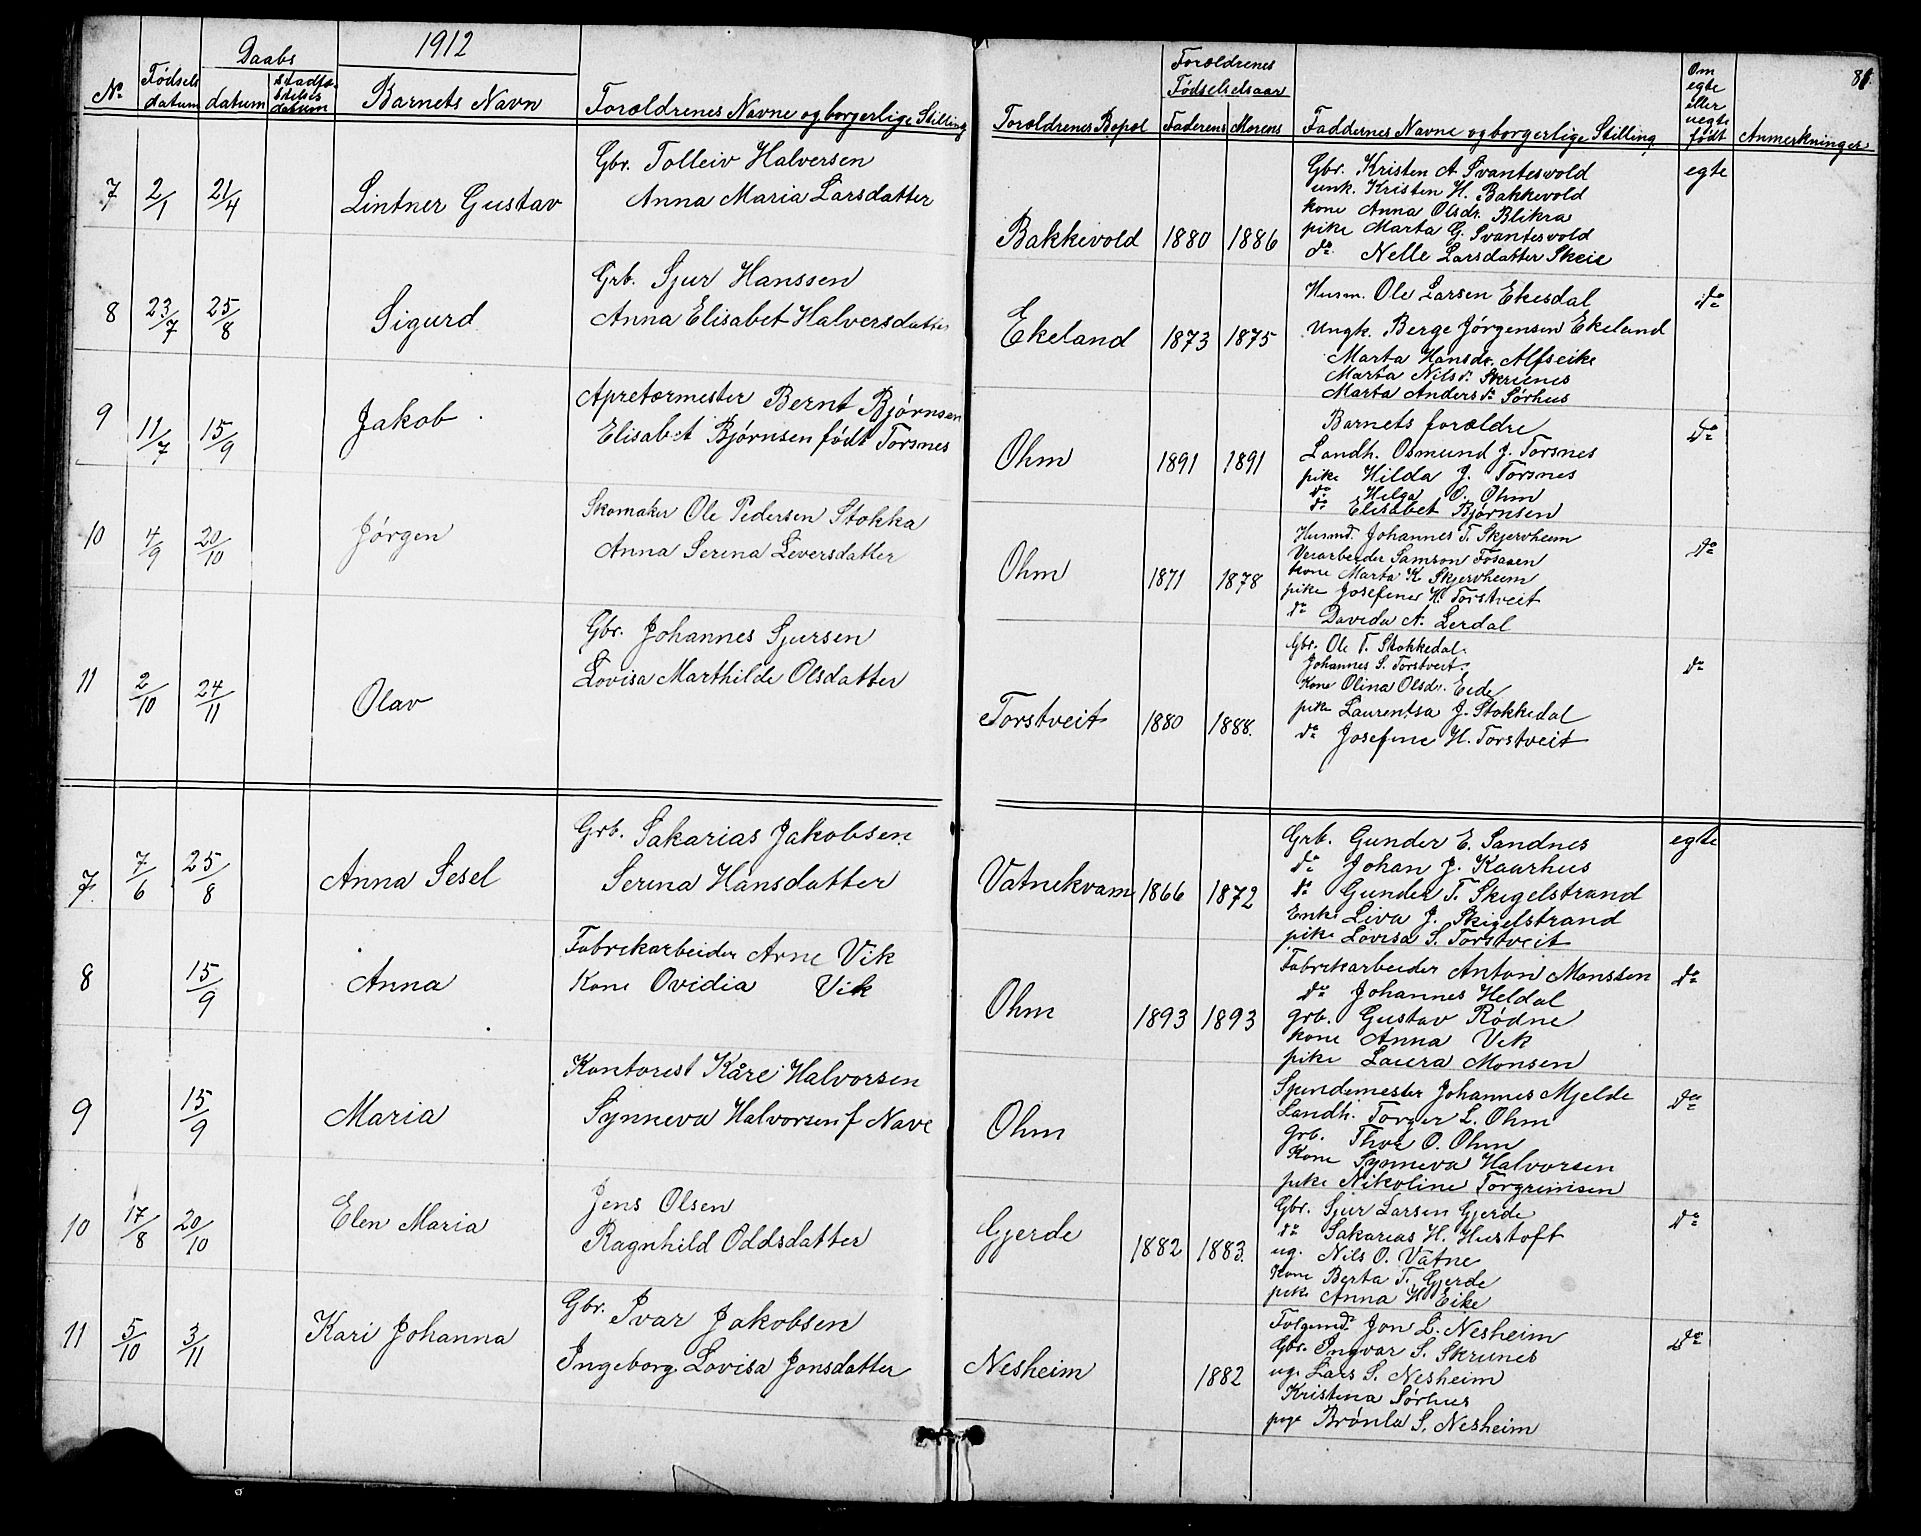 1912
81
No Fødsels datum Daabs datum Stadfæstelses datum Barnets Navn Forældrenes Navne og borgerlige Stilling Forældrenes Bopæl Forældrenes Fødselsaar Faderens Morens Faddernes Navne og borgerlige Stilling Om egte eller uegte født Anmerkninger
7 2/1 21/4 Lintner Gustav
Gbr. Tolleiv Halversen
Anna Maria Larsdatter
Bakkevold 1880 1886
Gbr. Kristen A Svantesvold
unk. Kristen H. Bakkevold
kone Anna Olsdr. Blikra
pike Marta G. Svantesvold
do. Nelle Larsdatter Skeie
egte
8 23/7 25/8 Sigurd
Grb. Sjur Hanssen
Anna Elisabet Halversdatter
Ekeland 1873 1875
Husm. Ole Larsen Ekesdal
Ungk. Berge Jørgensen Ekeland
Marta Hansdr. Alfseike
Marta Nilsdr. Skrienes
Marta Andersdr. Sørhus
do
9 11/7 15/9 Jakob
Apretørmester Bernt Bjørnsen
Elisabet Bjørnsen født Torsnes
Ohm 1891 1891
Barnets forældre
Landh. Osmund J. Torsnes
pike Hilda J. Torsnes
do Helga O. Ohm
do Elisabet Bjørnsen
do
10 4/9 20/10 Jørgen
Skomaker Ole Pedersen Stokka
Anna Serina Leversdatter
Ohm 1871 1878
Husmd. Johannes T. Skjervheim
Samson Fosaaen
kone Marta K Skjervheim
pike Josefine H. Torstveit
do Davida A. Lerdal
do
11 2/10 24/11 Olav
Gbr. Johannes Sjursen
Lovisa Marthilde Olsdatter
Torstveit 1880 1888.
Gbr. Ole T. Stokkedal.
Johannes S. Torstveit.
Kone Olina Olsdr. Eide
pike Laurentsa J. Stokkedal
do Josefine H. Torstveit
do
7. 7/6 25/8 Anna Sesel
Grb. Sakarias Jakobsen
Serina Hansdatter
Vatnekvam 1866 1872
Grb. Gunder E. Sandnes
do Johan J. Kaarhus
do Gunder T. Skigelstrand
Enke Liva J. Skigelstrand
pike Lovisa S. Torstveit
egte
8 15/9 Anna
Fabrikarbeider Arne Vik
Kone Ovidia Vik
Ohm 1893 1893
Fabrikarbeider Anton Monssen
do Johannes Heldal
grb. Gustav Rødne
kone Anna Vik
pike Laura Monsen
do
9 15/9 Maria
Kontorist Kåre Halvorsen
Synneva Halvorsen f Nave
Ohm
Spindemester Johannes Mjelde
Landh. Torger L. Ohm
Grb. Thor O. Ohm
Kone Synneva Halvorsen
pike Nikoline Torgrimsen
do
10 17/8 20/10 Elen Maria
Jens Olsen
Ragnhild Oddsdatter
Gjerde 1882 1883.
Gbr. Sjur Larsen Gjerde
do Sakarias H. Hustoft
ug. Nils O. Vatne
Kone Berta T. Gjerde
pike Anna H Eike
do
11 5/10 3/11 Kari Johanna
Gbr. Ivar Jakobsen
Ingeborg Lovisa Jonsdatter
Nesheim 1882
Folgemd. Jon L. Nesheim
Gbr. Ingvar S. Skrunes
ug. Lars S. Nesheim
Kristina Sørhus
pige Brønla S. Nesheim
do